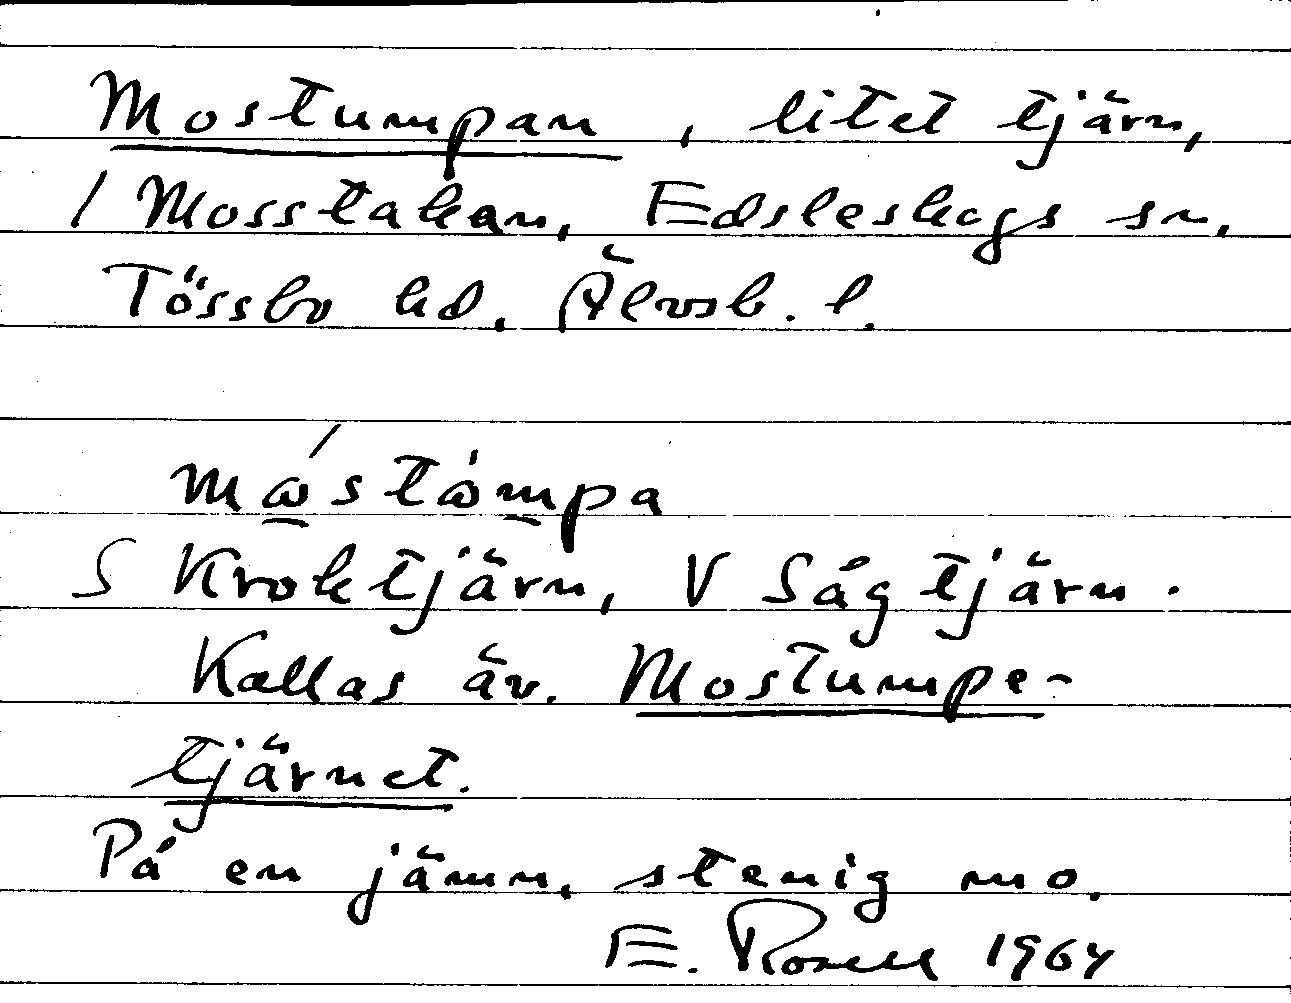 Mostumpan, litet tjärn,
/ Mosstakan, Edsleskogs sn,
Tössbo hd. Älvsb. l.
S Kroktjärn, V Sågtjärn.
Kallas äv. Mostumpe-
tjärnet.
På en jämn, stenig mo.
E. Rosell 1964